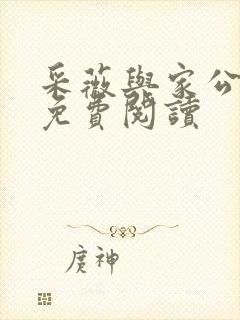 采薇與家公
免費閱讀
庹神